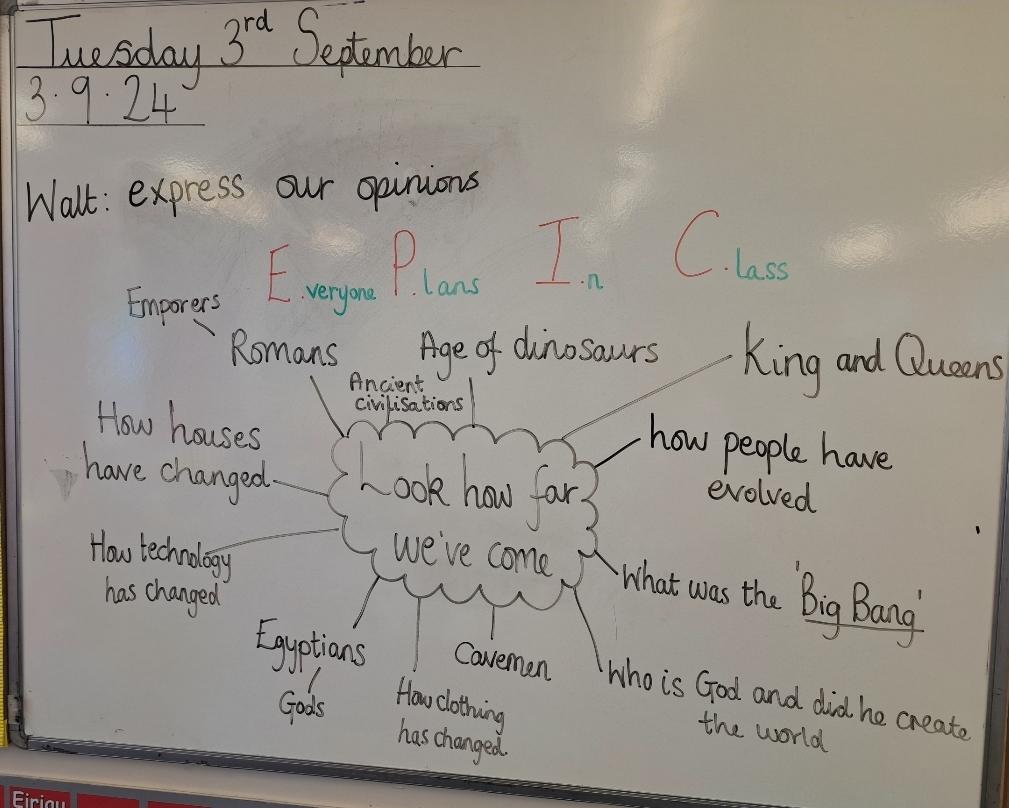 Tuesday 3rd September
3.9.24
Walt: express our opinions
E.veryone P.lans I.n C.lass
Emporers
Romans
Ancient
civilisations
Age of dinosaurs
King and Queens
How houses
have changed
Look how far
we've come
how people have
evolved
How technology
has changed
What was the 'Big Bang'
Egyptians
Gods
How clothing
has changed
Cavemen
Who is God and did he create
the world
Eirigu